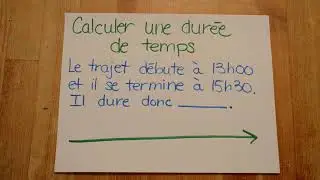 Calculer une durée
de temps
Le trajet débute à 13h00
et il se termine à 15h30.
Il dure donc ______.